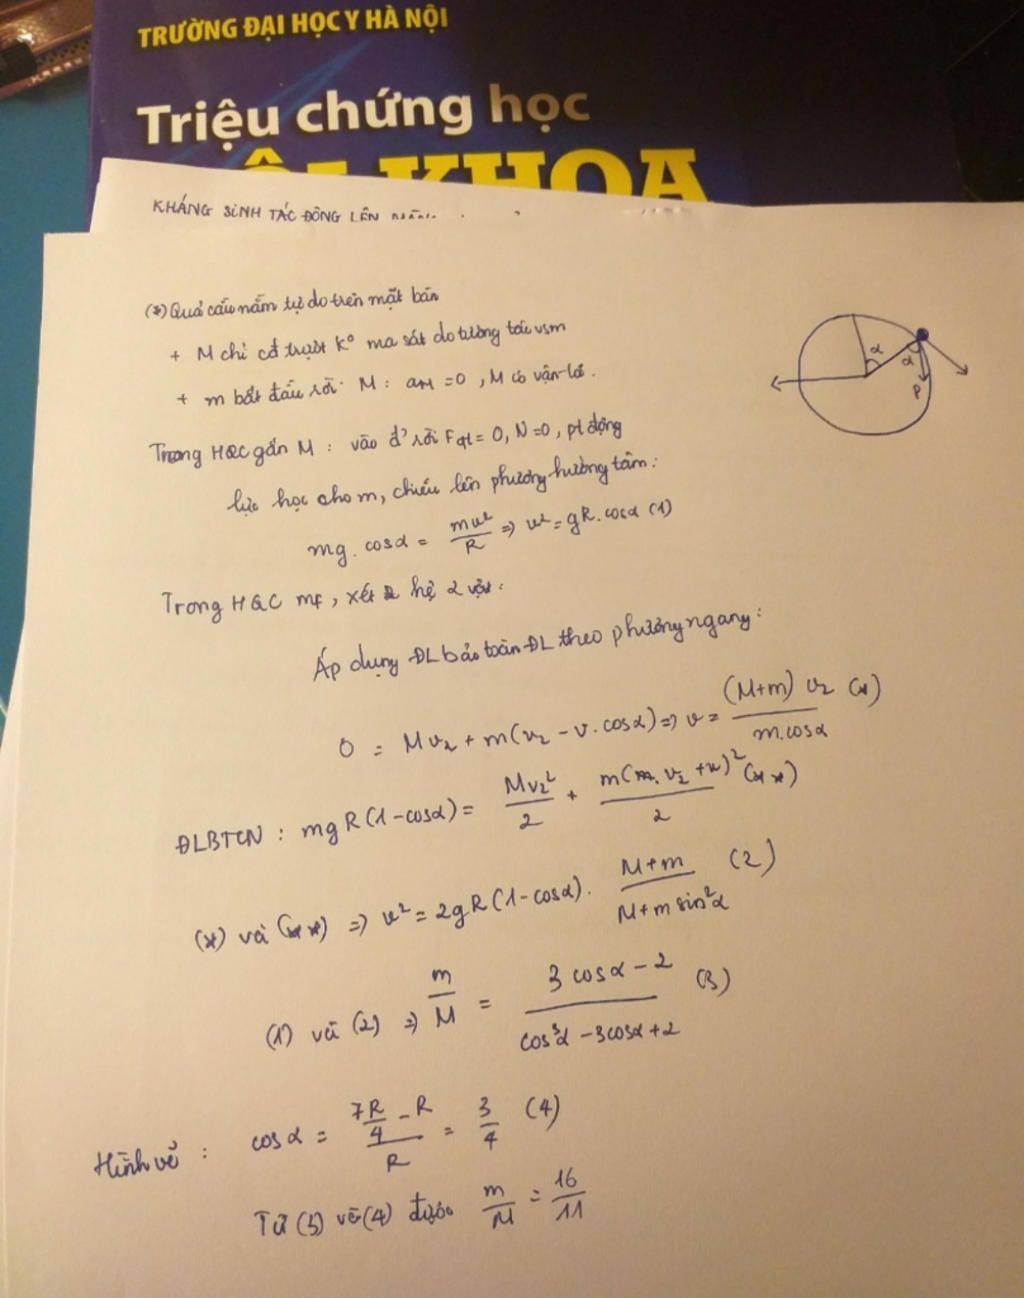 TRƯỜNG ĐẠI HỌC Y HÀ NỘI
Triệu chứng học
KHOA
KHÁNG SINH TÁC ĐỘNG LÊN
(*) Quả cầu nằm tự do trên mặt bàn
+ M chỉ có trượt k° ma sát do tương tác vs m
+ m bắt đầu rời M : aM = 0 , M có vận tốc .
Trong HQC gắn M : vào đ' rời Fqt = 0, N = 0, pt động
lực học cho m, chiếu lên phương hướng tâm :
mg . cosα = mv²/R ⇒ v² = gR . cosα (1)
α
α
P
Trong HQC mđ , xét hệ 2 vật :
Áp dụng ĐL bảo toàn ĐL theo phương ngang :
0 = Mv₂ + m(v₂ - v . cosα) ⇒ v = (M+m) v₂ / m.cosα (*)
ĐLBTCN : mgR(1-cosα) = Mv₂²/2 + m(v₂ + v)²/2 (**)
(*) và (**) ⇒ v² = 2gR(1-cosα) . M+m / M+m sin²α (2)
(1) và (2) ⇒ m/M = 3 cosα - 2 / cos³α - 3cosα + 2 (3)
Hình vẽ : cosα = 7R/4 - R / R = 3/4 (4)
Từ (3) và (4) được m/M = 16/11